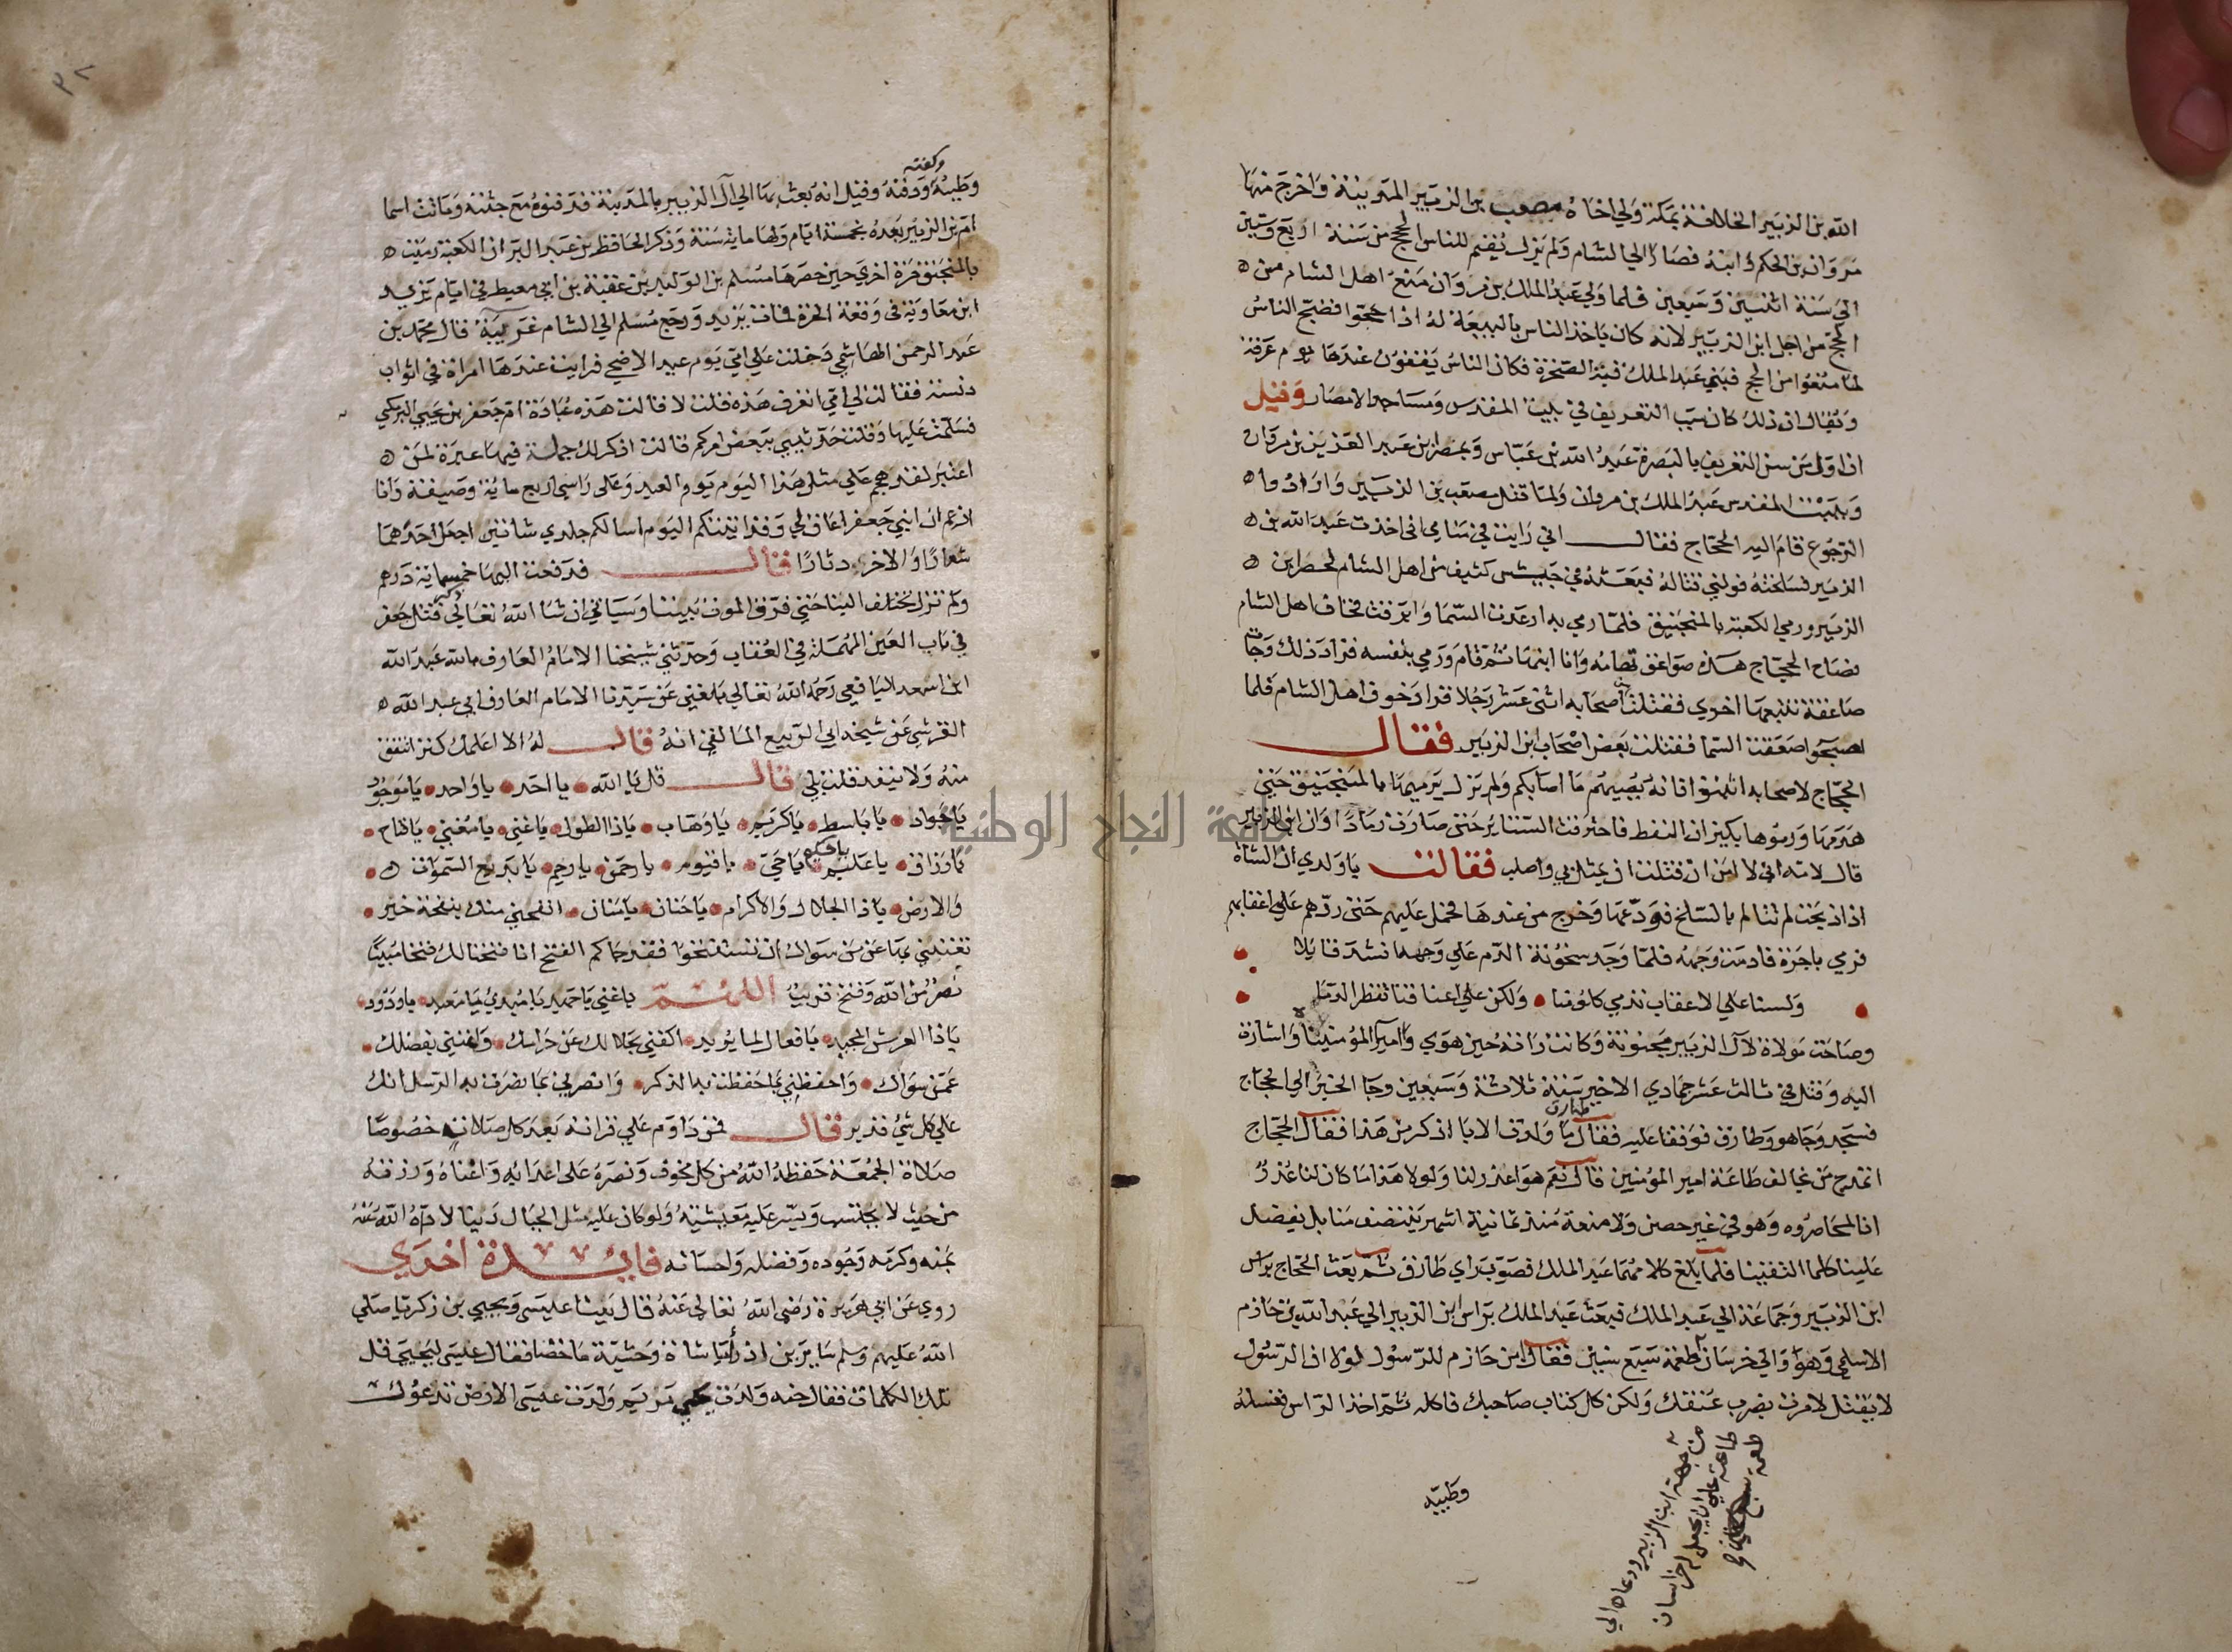 الله بن الزبير الخلافة بمكة ولي اخاه مصعب بن الزبير المدينة واخرج منها
مروان بن الحكم وابنه فصارا الي الشام ولم يزل يقيم للناس الحج من سنة اربع وستين
الي سنة اثنين وسبعين فلما ولي عبد الملك بن مروان منع اهل الشام من
الحج من اجل ابن الزبير لانه كان ياخذ الناس بالبيعة له اذا حجوا فضج الناس
لما منعوا من الحج فبني عبد الملك قبة الصخرة فكان الناس يقفون عندها يوم عرفة
ويقال ان ذلك كان سبب التعريف في بيت المقدس ومساجد الامصار وقيل
ان اول من سن التعريف بالبصرة عبد الله بن عباس وبمصر ابن عبد العزيز بن مروان
وبيت المقدس عبد الملك بن مروان ولما قتل مصعب بن الزبير وارادوا
الرجوع قام اليه الحجاج فقال اني رايت في منامي اني اخذت عبد الله بن
الزبير فسلخته فولني قتاله فبعثه في جيش كثيف من اهل الشام فحصر ابن
الزبير ورمي الكعبة بالمنجنيق فلما رمي به ارعدت السما وابرقت فخاف اهل الشام
فصاح الحجاج هذه صواعق تهامه وانا ابنها ثم قام ورمي بنفسه فزاد ذلك وجات
صاعقة تتبعها اخري فقتلت من اصحابه اثني عشر رجلا فزاد خوف اهل الشام فلما
اصبحوا صعقت السما فقتلت بعض اصحاب ابن الزبير فقال
الحجاج لاصحابه اثبتوا فانه يصيبهم ما اصابكم ولم يزل يرميها بالمنجنيق حتي
هدمها ورموها بكيزان النفط فاحترقت الستاير حتي صارت رمادا وان ابن الزبير
قال لامه اني لا امن ان قتلت ان يمثل بي واصلب فقالت يا ولدي ان الشاة
اذا ذبحت لم تالم بالسلخ فودعها وخرج من عندها فحمل عليهم حتي ردهم علي اعقابهم
فرمي باجرة فادمت وجهه فلما وجد سخونة الدم علي وجهه انشد قايلا
ولسنا علي الاعقاب تدمي كلومنا ولكن علي اعقابنا تقطر الدما
وصاحت مولاة لال الزبير مجنونة وكانت راته حين هوي وا امير المومنيناه واشارت
اليه وقتل في ثالث عشر جمادي الاخير سنة ثلاثة وسبعين وجا الخبر الي الحجاج
فسجد وجا هو وطارق فوقفا عليه فقال طارق ما ولدت الابا اذكر من هذا فقال الحجاج
اتمدح من يخالف طاعة امير المومنين قال نعم هو اعذر لنا ولولا هذا ما كان لنا عذر
انا لمحاصروه وهو في غير حصن ولا منعة منذ ثمانية اشهر ينتصف منا بل يفضل
علينا كلما التقينا فلما بلغ كلامهما عبد الملك فصوب راي طارق ثم بعث الحجاج براس
ابن الزبير وجماعة الي عبد الملك فبعث عبد الملك براس ابن الزبير الي عبد الله بن خازم
الاسلمي وهو والي خرسان طعمة سبع سنين فقال ابن حازم للرسول لولا ان الرسول
لا يقتل لامرت بضرب عنقك ولكن كل كتاب صاحبك فاكله ثم اخذ الراس فغسله
من جهة ابن الزبير ودعاه الي
طاعته علي ان يجعل له خراسان
طعمة سبع
وطيبه
٣٨
وكفنه
وطيبه ودفنه وقيل انه بعث بها الي ال الزبير بالمدينة فدفنوه مع جثته وماتت اسما
ام بن الزبير بعده بخمسة ايام ولها ماية سنة وذكر الحافظ بن عبد البر ان الكعبة رميت
بالمنجنيق مرة اخري حين حصرها مسلم بن الوليد بن عقبة بن ابي معيط في ايام يزيد
ابن معاوية في وقعة الحرة فمات يزيد ورجع مسلم الي الشام غريبة قال محمد بن
عبد الرحمن الهاشمي دخلت علي امي يوم عيد الاضحي فرايت عندها امراة في اثواب
دنسة فقالت لي امي اتعرف هذه قلت لا قالت هذه عبادة ام جعفر بن يحيي البرمكي
فسلمت عليها وقلت حدثيني ببعض امركم قالت اذكر لك جملة فيها عبرة لمن
اعتبر لقد هجم علي مثل هذا اليوم يوم العيد وعلي راسي اربع ماية وصيفة وانا
ازعم ان ابني جعفرا عاق لي وقد اتيتكم اليوم اسالكم جلدي شاتين اجعل احدهما
شعارا والاخر دثارا قال فدفعت اليها خمسماية درهم
ولم تزل تختلف الينا حتي فرق الموت بيننا وسياتي ان شا الله تعالي ذكر قتل جعفر
في باب العين المهملة في العقاب وحدثني شيخنا الامام العارف بالله عبد الله
ابن اسعد اليافعي رحمه الله تعالي بلغني عن سيدنا الامام العارف ابي عبد الله
القرشي عن شيخه ابي الربيع المالقي انه قال له الا اعلمك كنز اتنفق
منه ولا ينفد قلت بلي قال قل يا الله يا احد يا واحد يا موجود
يا جواد يا باسط يا كريم يا وهاب يا ذا الطول يا غني يا مغني يا فتاح
يا رزاق يا عليم يا حكيم يا حي يا قيوم يا رحمن يا رحيم يا بديع السموات
والارض يا ذا الجلال والاكرام يا حنان يا منان انفحني منك بنفحة خير
تغنيني بها عن من سواك ان تستفتحوا فقد جاكم الفتح انا فتحنا لك فتحا مبينا
نصر من الله وفتح قريب اللهم يا غني يا حميد يا مبدي يا معيد يا ودود
يا ذا العرش المجيد يا فعال لما يريد اكفني بحلالك عن حرامك واغنني بفضلك
عمن سواك واحفظني بما حفظت به الذكر وانصرني بما نصرت به الرسل انك
علي كل شي قدير قال فمن داوم علي قراته بعد كل صلاة خصوصا
صلاة الجمعة حفظه الله من كل مخوف ونصره علي اعدايه واغناه ورزقه
من حيث لا يحتسب ويسر عليه معيشته ولو كان عليه مثل الجبال دينا لاداه الله عنه
بمنه وكرمه وجوده وفضله واحسانه فايدة اخري
روي عن ابي هريرة رضي الله تعالي عنه قال بينا عيسي ويحيي بن زكريا صلي
الله عليهم وسلم سايرين اذ رايا شاة وحشية ماخضا فقال عيسي ليحيي قل
تلك الكلمات فقال حنه ولدت يحيي مريم ولدت عيسي الارض تدعوك
جامعة النجاح الوطنية